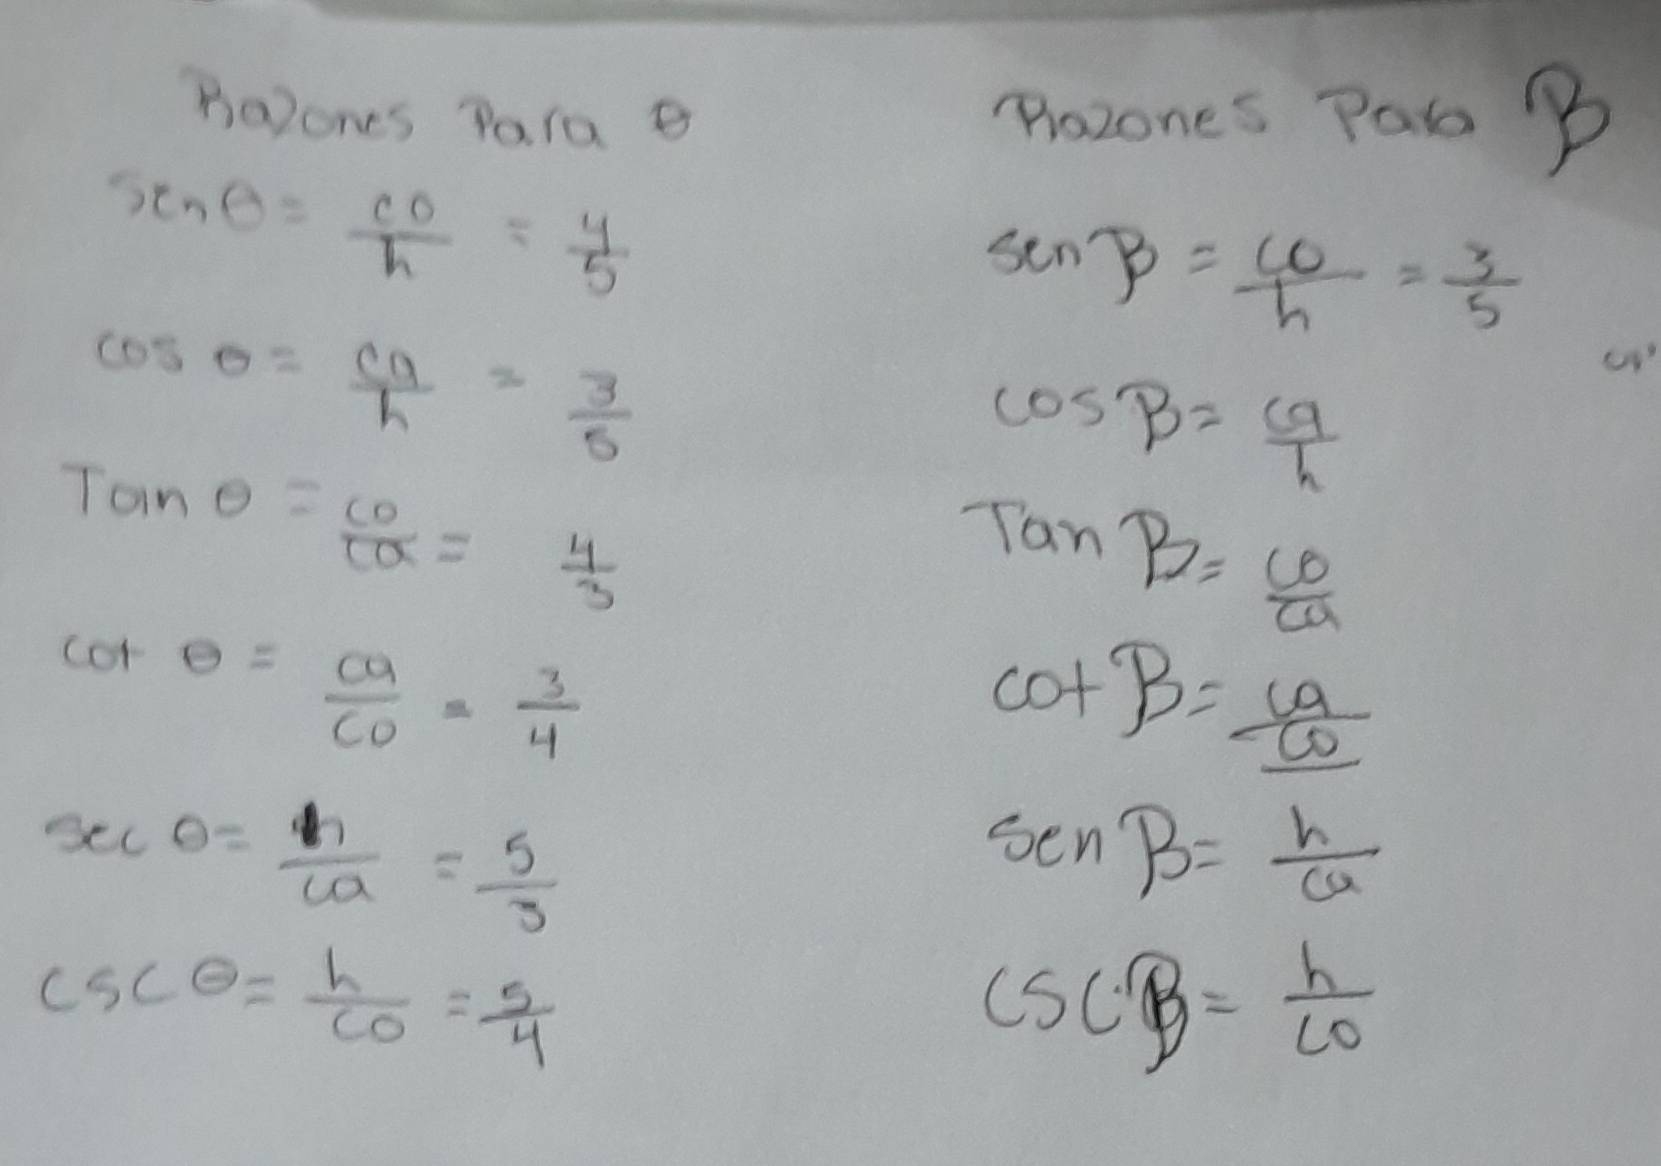 Razones Para θ
sen θ = co/h = 4/5
cos θ = ca/h = 3/5
Tan θ = co/ca = 4/3
cot θ = ca/co = 3/4
sec θ = h/ca = 5/3
csc θ = h/co = 5/4
Razones Para β
sen β = co/h = 3/5
cos β = ca/h
Tan β = co/ca
cot β = ca/co
sen β = h/ca
csc β = h/co